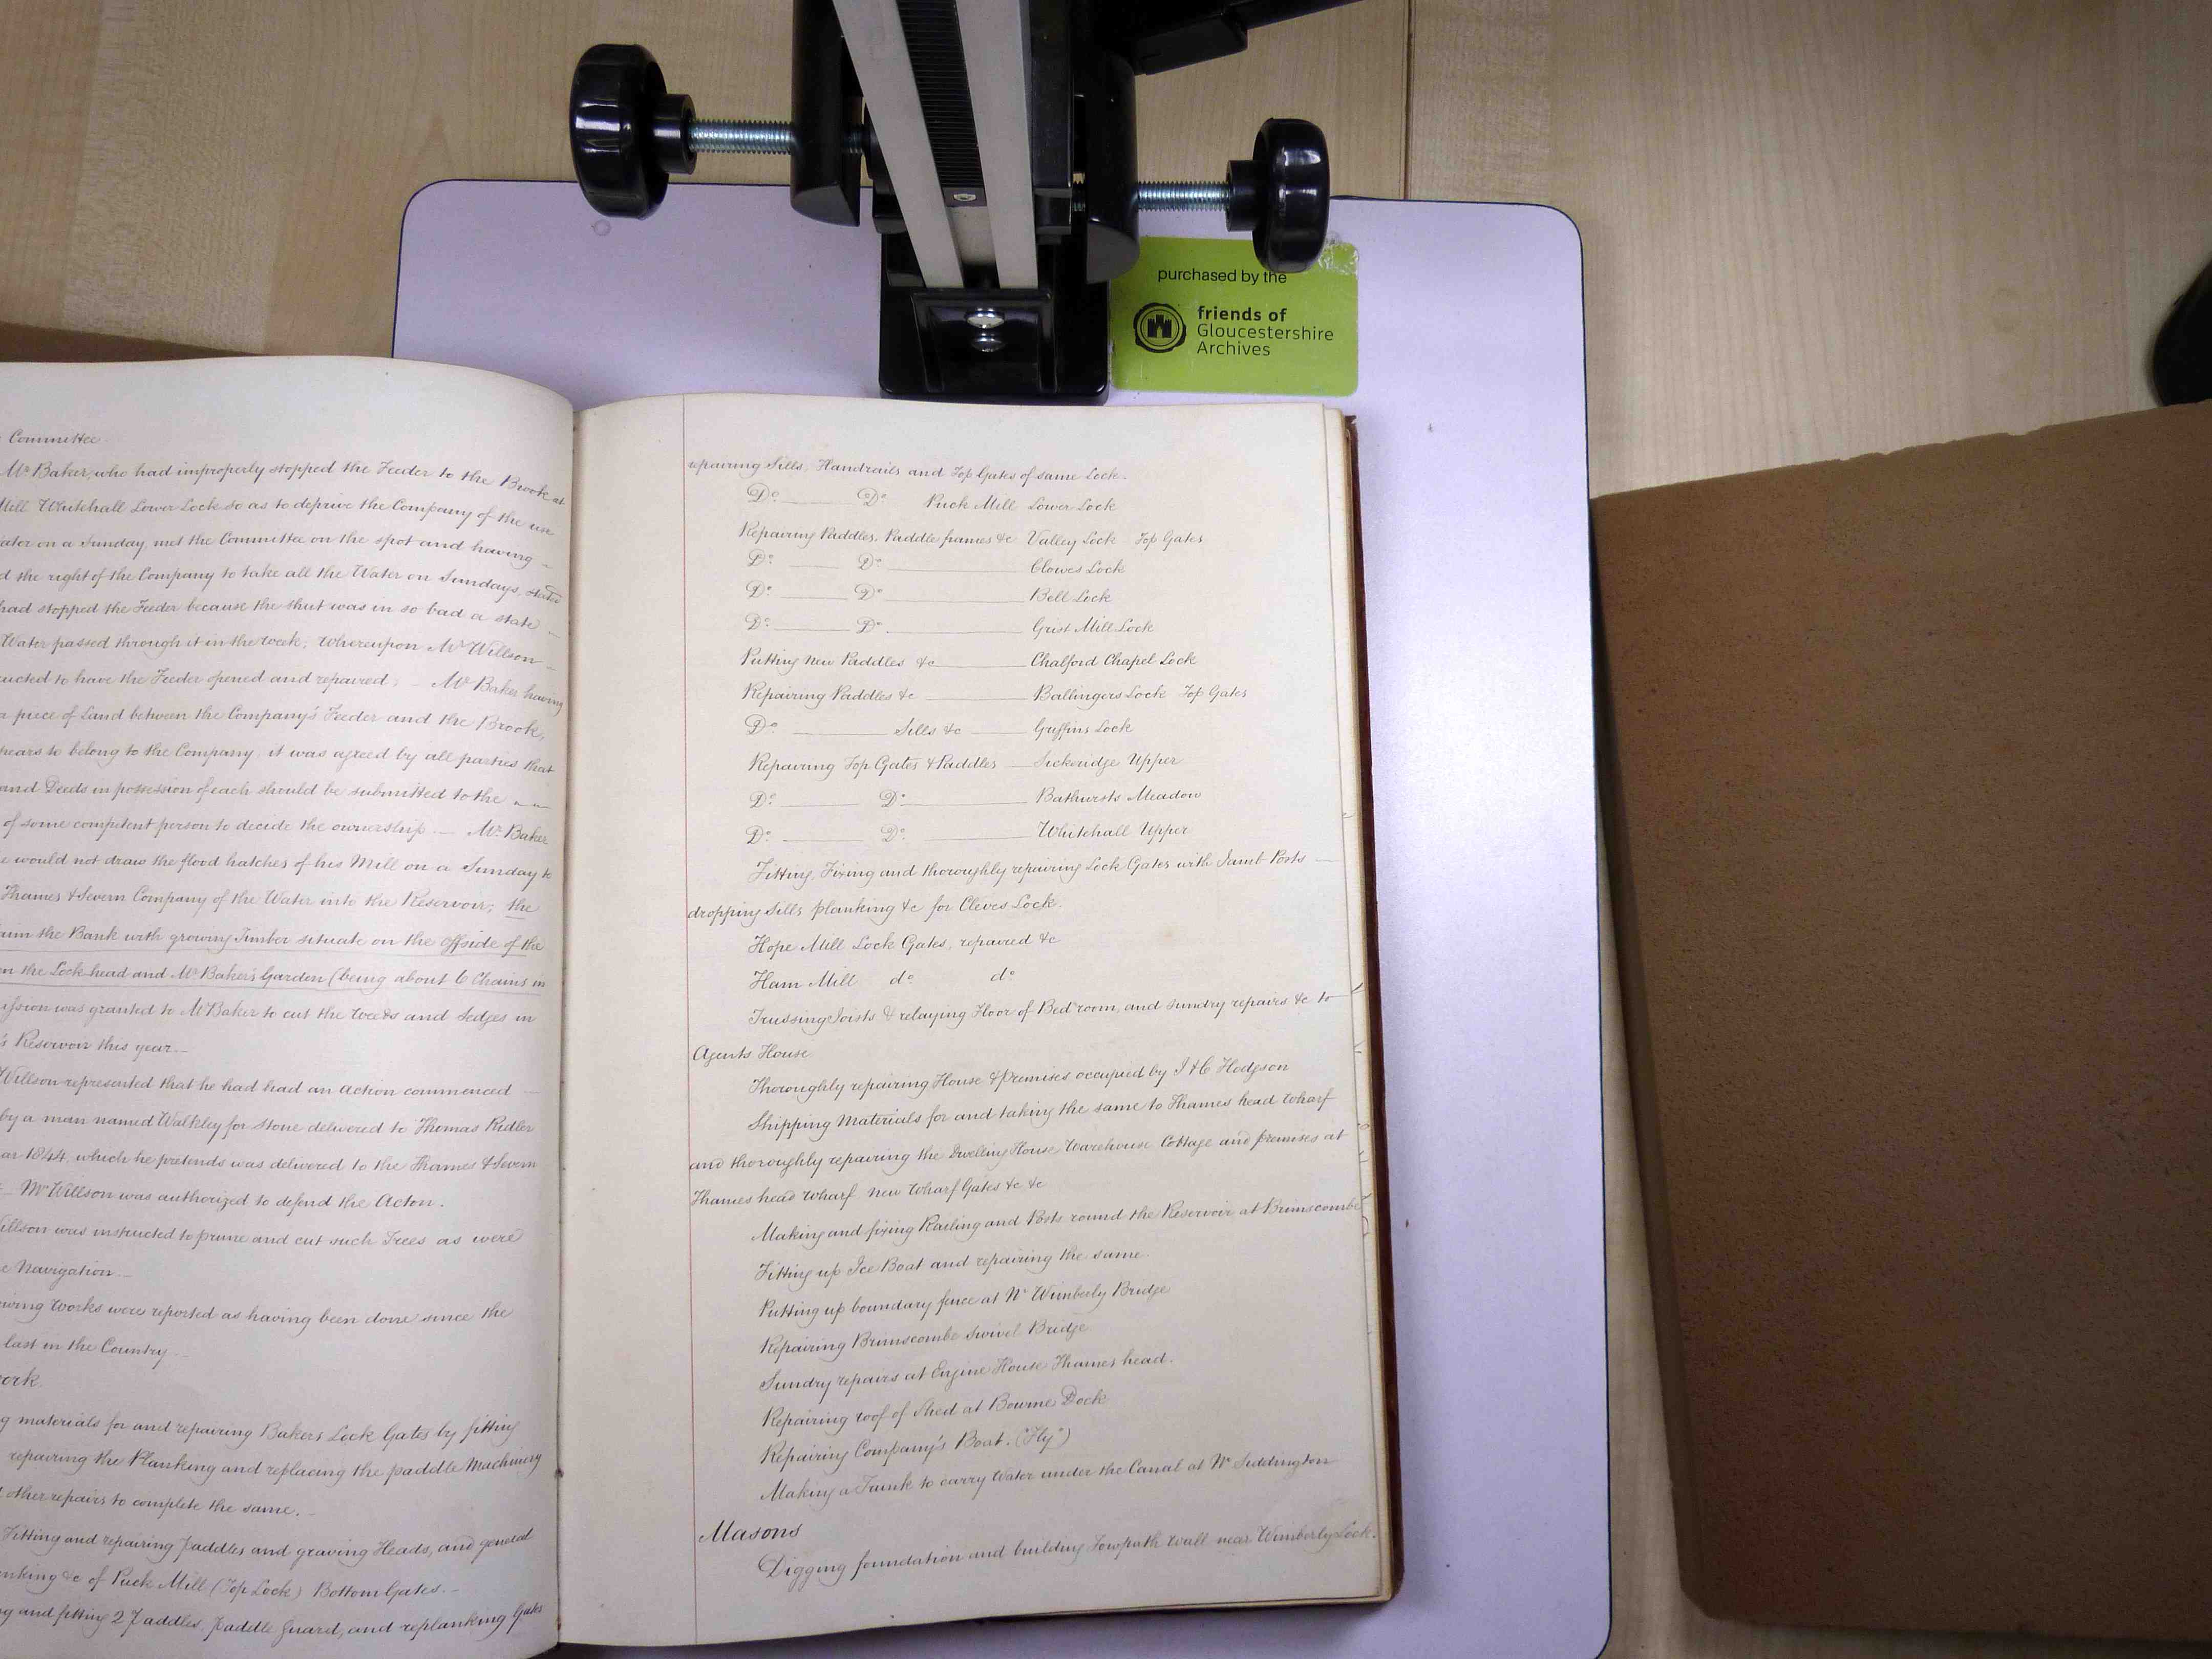 purchased by the
friends of
Gloucestershire
Archives
Committee
Mr Baker, who had improperly stopped the Feeder to the Brook at
Mill Whitehall Lower Lock so as to deprive the Company of the use
ater on a Sunday, met the Committee on the spot and having
d the right of the Company to take all the Water on Sundays, stated
had stopped the Feeder because the shut was in so bad a state
Water passed through it in the week; whereupon Mr Willson
ucted to have the Feeder opened and repaired; — Mr Baker having
a piece of Land between the Company's Feeder and the Brook,
pears to belong to the Company, it was agreed by all parties that
and Deeds in possession of each should be submitted to the
of some competent person to decide the ownership — Mr Baker
e would not draw the flood hatches of his Mill on a Sunday to
Thames & Severn Company of the Water into the Reservoir; the
aim the Bank with growing Timber situate on the offside of the
n the Lock head and Mr Baker's Garden (being about 6 Chains in
ission was granted to Mr Baker to cut the weeds and sedges in
's Reservoir this year.—
Willson represented that he had had an action commenced
by a man named Walkley for stone delivered to Thomas Ridler
ar 1844, which he pretends was delivered to the Thames & Severn
— Mr Willson was authorized to defend the Acton.
illson was instructed to prune and cut such Trees as were
e Navigation.—
owing works were reported as having been done since the
last in the Country —
ork.
g materials for and repairing Bakers Lock Gates by fitting
repairing the Planking and replacing the paddle Machinery
d other repairs to complete the same. —
Fitting and repairing Paddles and graving Heads, and general
nking &c of Puck Mill (Top Lock) Bottom Gates.—
g and fitting 2 Paddles, Paddle Guard, and replanking Gates
repairing Sills, Handrails and Top Gates of same Lock.
Do. Do. Puck Mill Lower Lock
Repairing Paddles, Paddle frames &c Valley Lock Top Gates
Do. Do. Clowes Lock
Do. Do. Bell Lock
Do. Do. Grist Mill Lock
Putting new Paddles &c Chalford Chapel Lock
Repairing Paddles &c Ballingers Lock Top Gates
Do. Sills &c Griffins Lock
Repairing Top Gates & Paddles Sickeridge Upper
Do. Do. Bathursts Meadow
Do. Do. Whitehall Upper
Fitting, Fixing and thoroughly repairing Lock Gates with Jamb Posts —
dropping Sills, planking &c for Cleves Lock.
Hope Mill Lock Gates, repaired &c
Ham Mill do. do.
Trussing Joists & relaying Floor of Bedroom, and sundry repairs &c to
Agents House
Thoroughly repairing House & Premises occupied by J & C Hodgson
Shipping Materials for and taking the same to Thames head Wharf
and thoroughly repairing the Dwelling House Warehouse Cottage and premises at
Thames head Wharf, new Wharf Gates &c &c
Making and fixing Railing and Posts round the Reservoir at Brimscombe
Fitting up Ice Boat and repairing the same.
Putting up boundary fence at Nr Wimberly Bridge
Repairing Brimscombe Swivel Bridge
Sundry repairs at Engine House Thames head.
Repairing roof of Shed at Bourne Dock
Repairing Company's Boat. ("Fly")
Making a Trunk to carry Water under the Canal at Nr Siddington
Masons
Digging foundation and building Towpath Wall near Wimberly Lock.